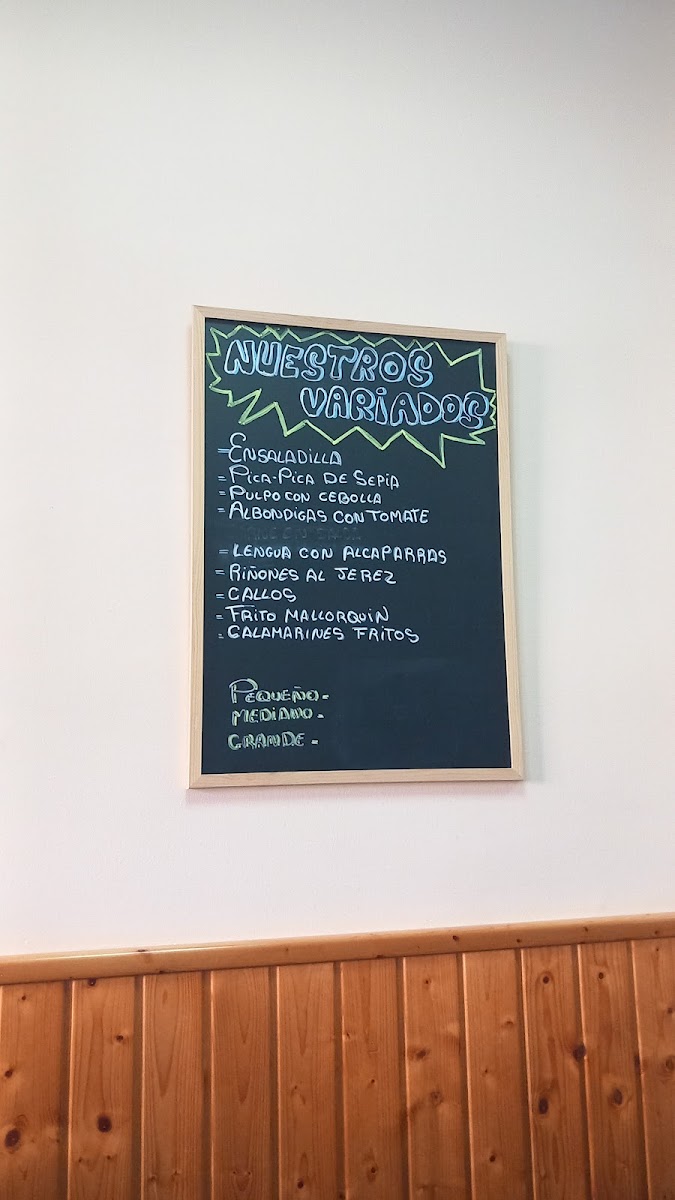 NUESTROS
VARIADOS
= ENSALADILLA
= PICA-PICA DE SEPIA
= PULPO CON CEBOLLA
= ALBONDIGAS CON TOMATE
= LENGUA CON ALCAPARRAS
= RIÑONES AL JEREZ
= CALLOS
= FRITO MALLORQUIN
= CALAMARINES FRITOS
PEQUEÑO -
MEDIANO -
GRANDE -